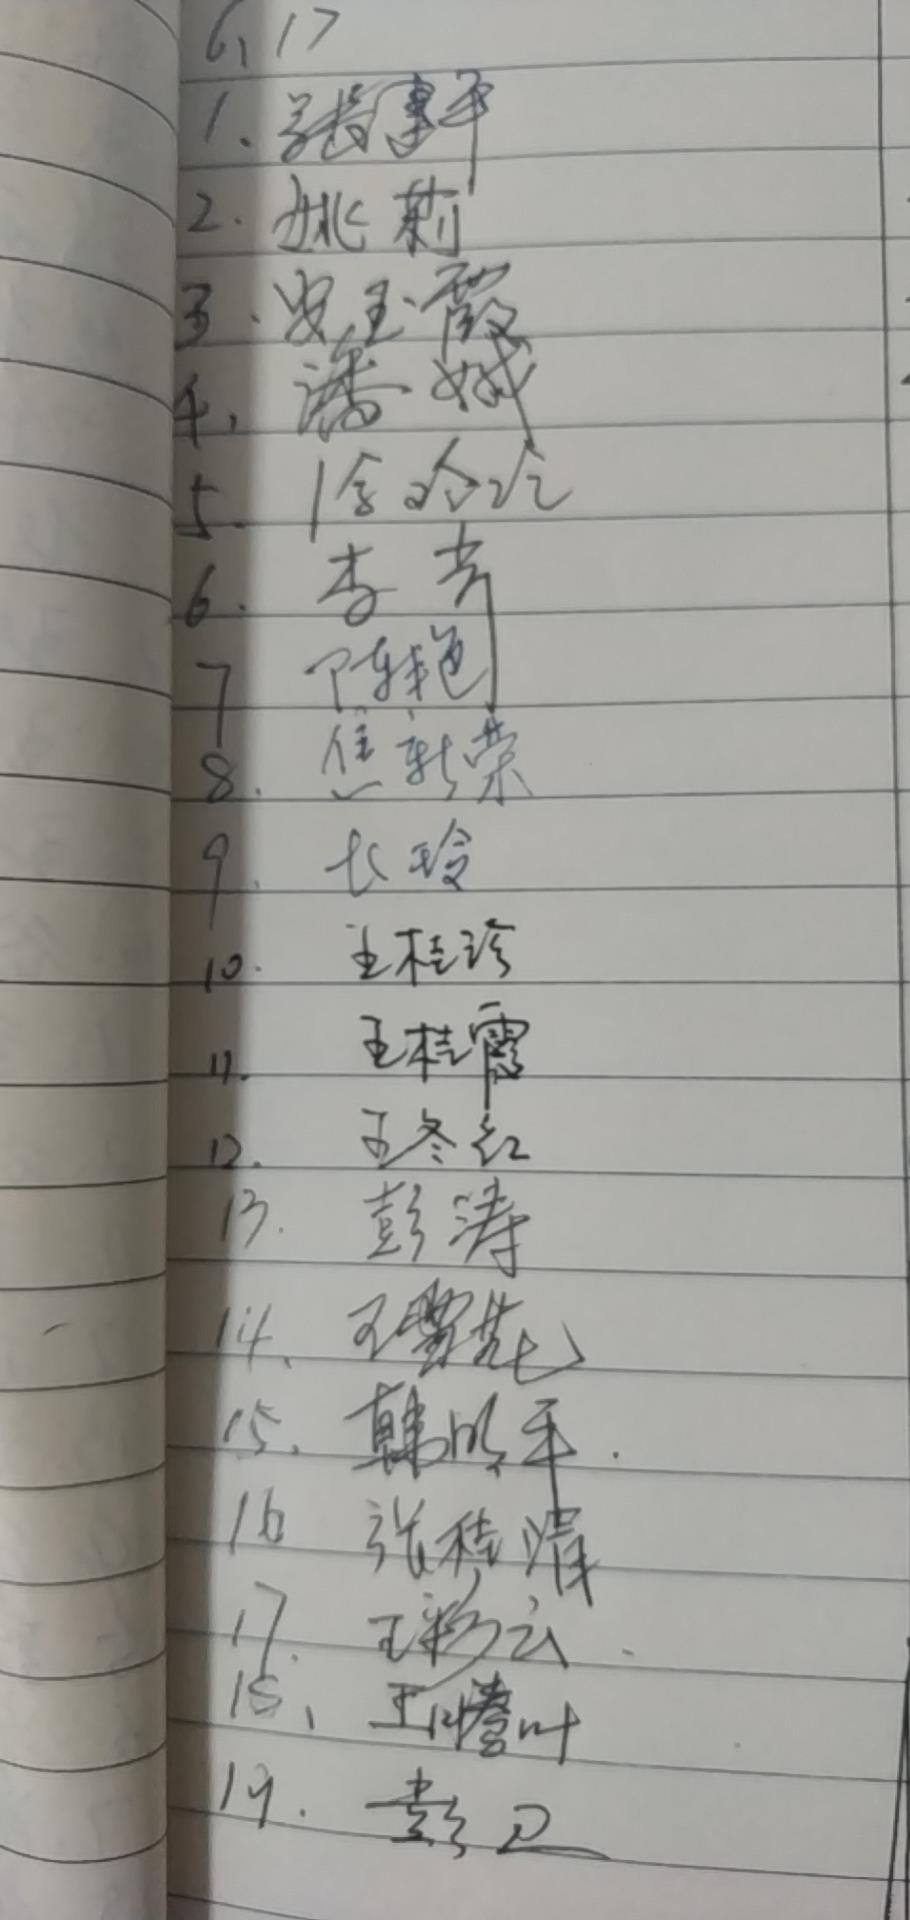 6、17
1. 张建平
2. 姚莉
3. 安玉霞
4. 潘斌
5. 徐玲玲
6. 李芳
7 陈艳
8. 焦新荣
9. 长玲
10. 王桂珍
11. 王桂霞
12. 王冬红
13. 彭涛
14、王雪艳
15、韩明平.
16 张桂清
17. 王彩云.
18、王叶
19. 彭卫